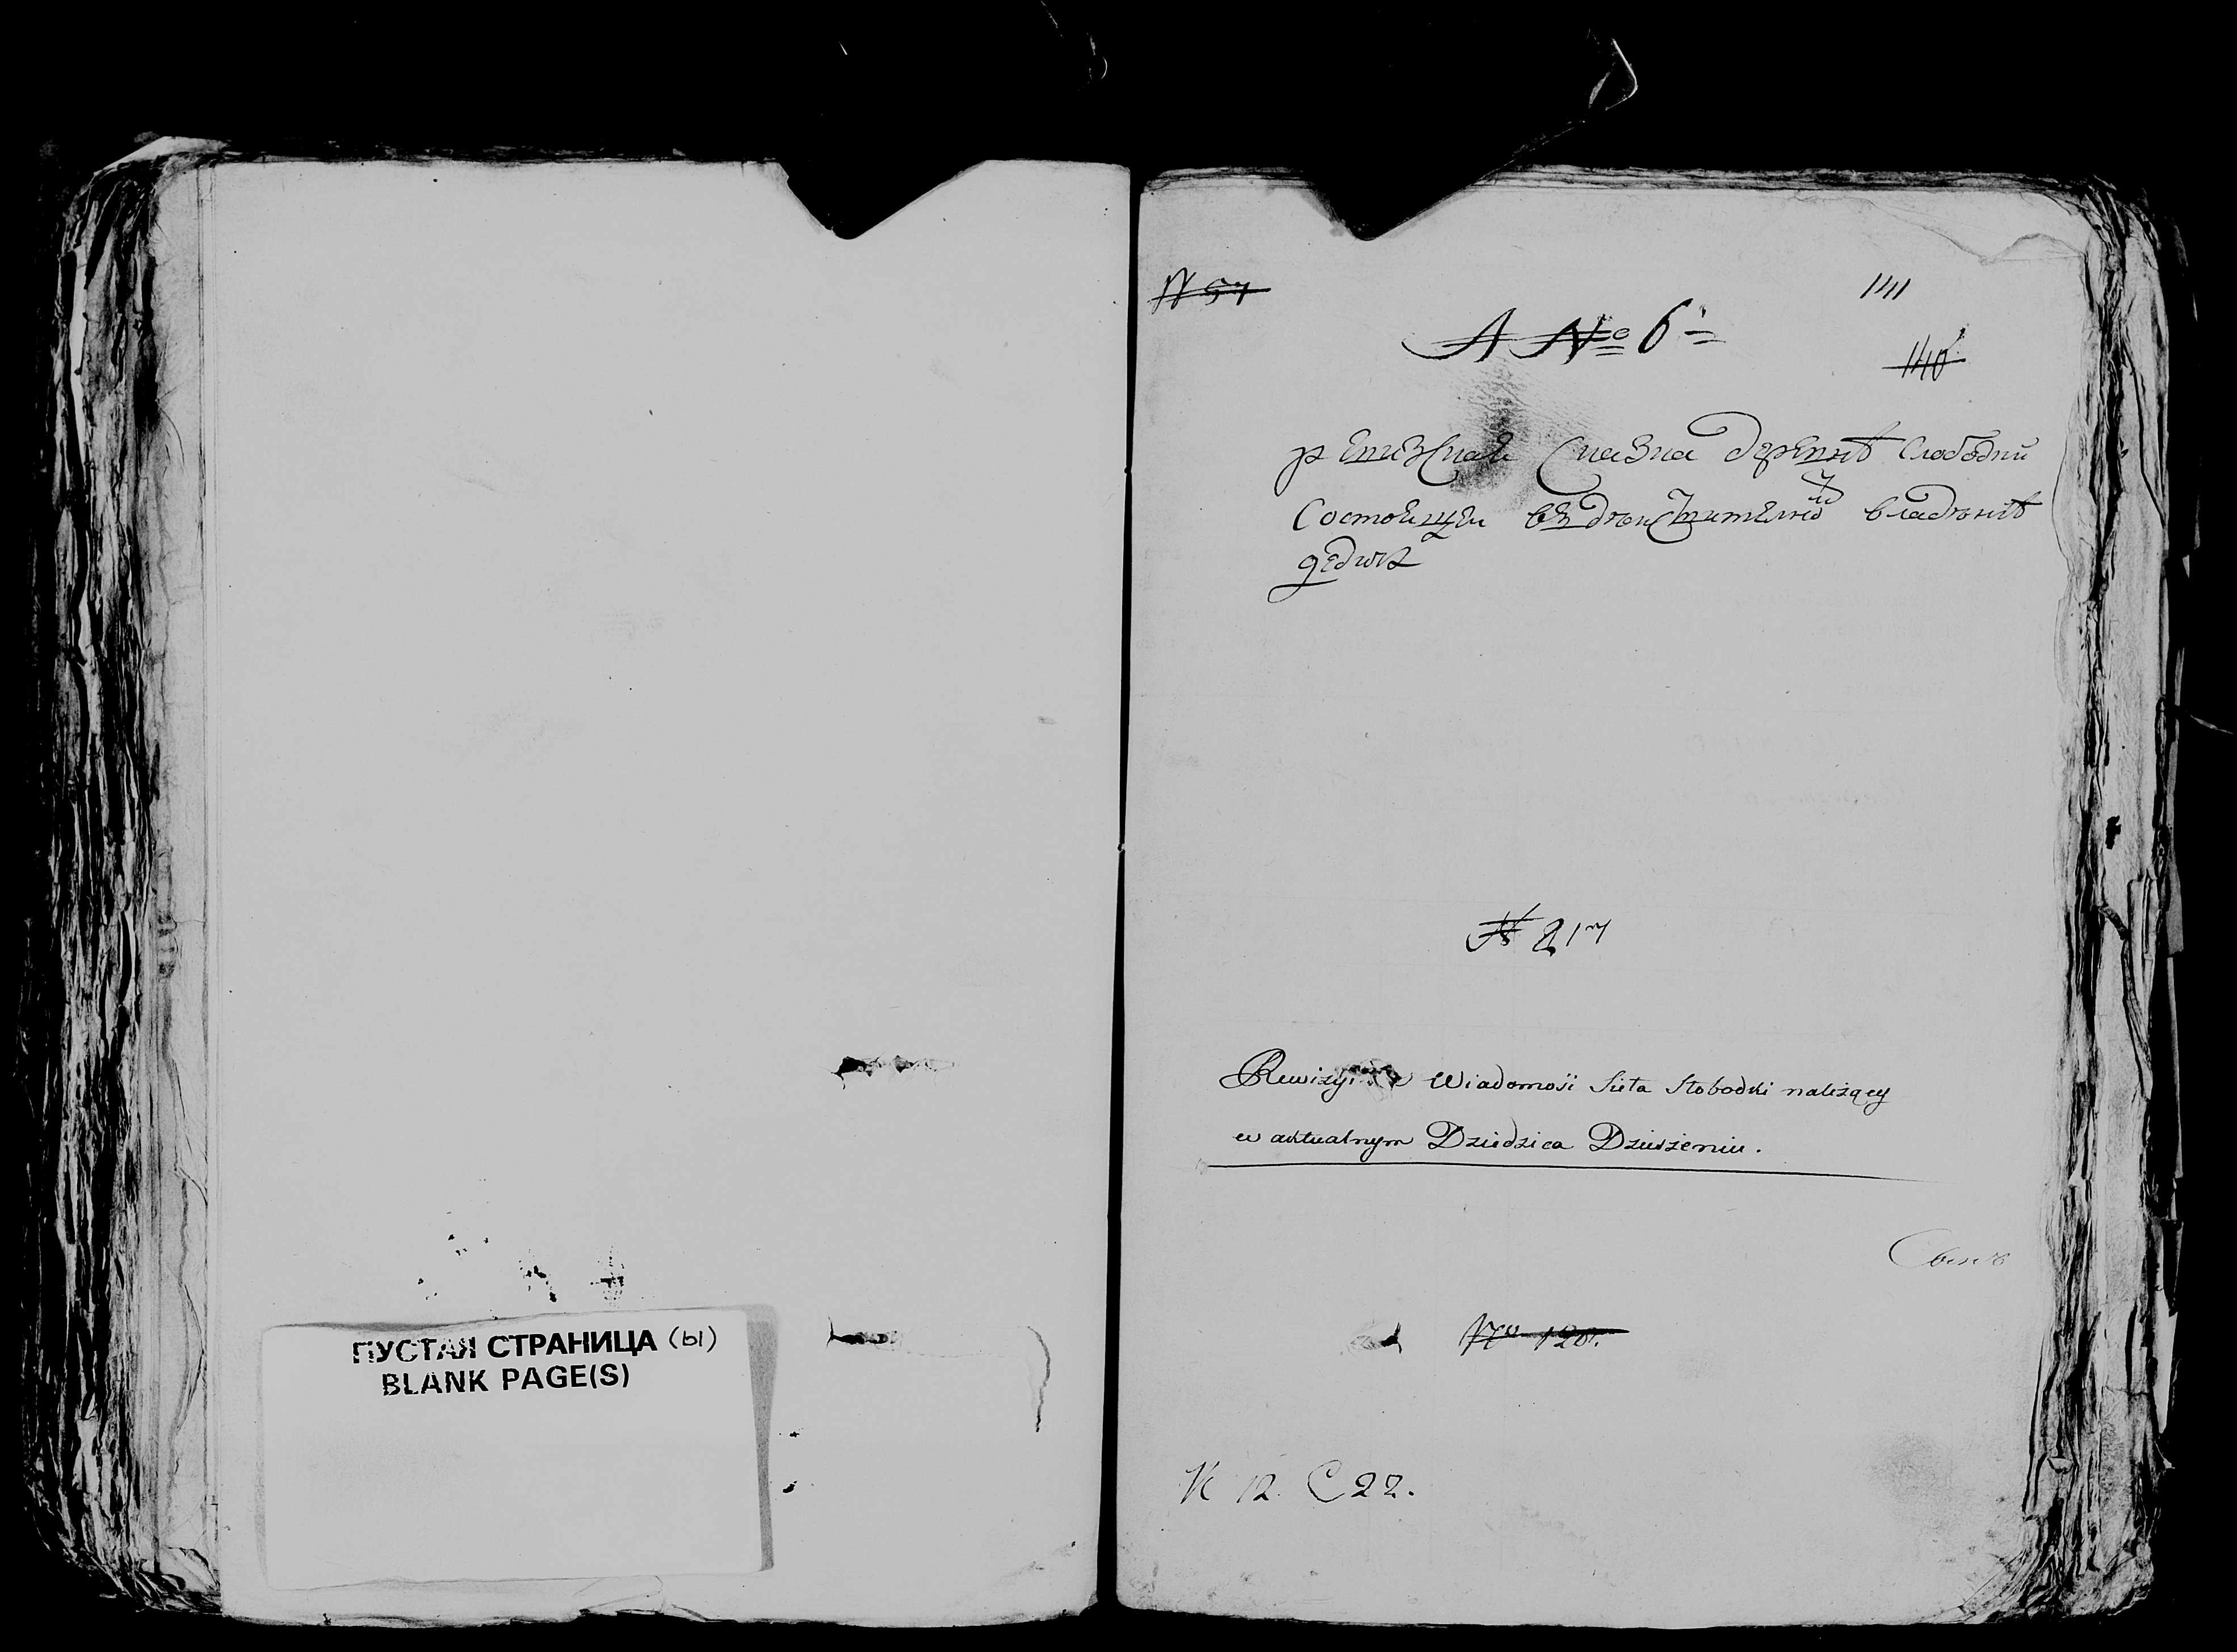 ПУСТАЯ СТРАНИЦА (ы)
BLANK PAGE(S)
N 57
141
A № 6
140
ревизская сказка деревнѣ слободки
состоящеи въ дѣиствителной владѣнiѣ
дедича
№ 217
Wiadomosci Sieła Słobodki należący
w aktualnym Dziedzica Dzierżeniu.
N 12. C 22.